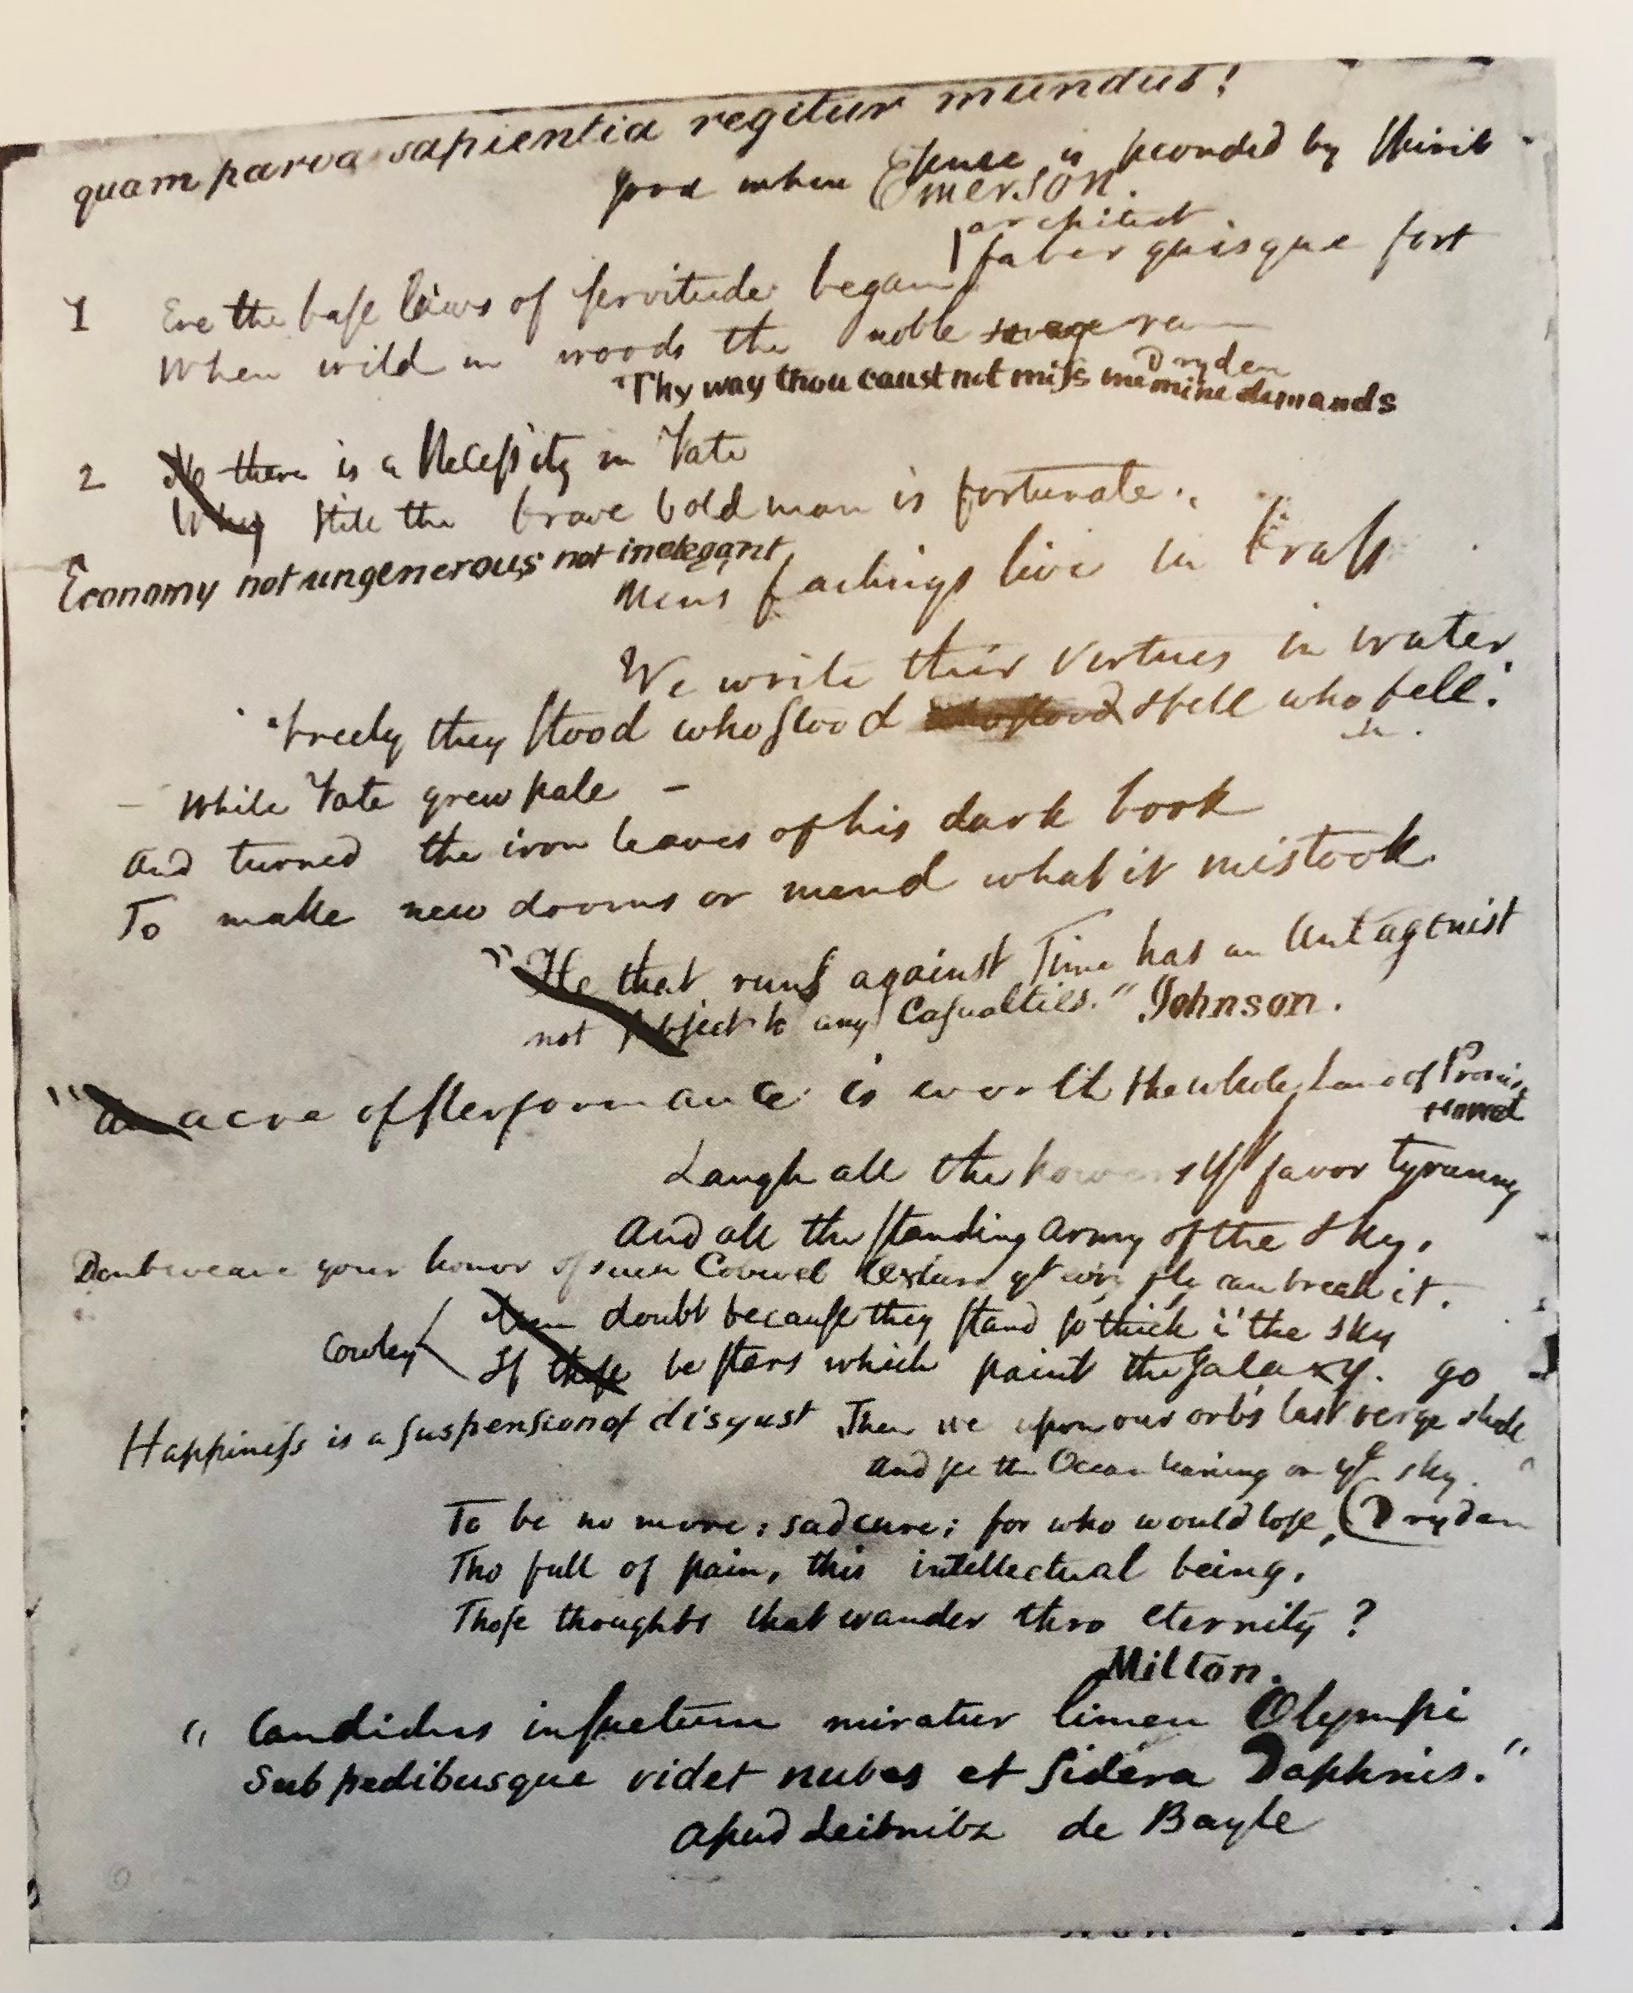 quam parva sapientia regitur mundus!
good when Sense is seconded by Spirit
Emerson.
architect
1 Ere the base laws of servitude began faber quisque fort
When wild in woods the noble savage ra
Dryden
"Thy way thou canst not miss me mine demands
2 No there is a Necessity in Fate
Why still the brave bold man is fortunate.
Economy not ungenerous not inelegant
Mens failings live in brass
We write their virtues in water
"Freely they stood who stood & fell who fell."
— While Fate grew pale —
And turned the iron leaves of his dark book
To make new dooms or mend what it mistook.
"He that runs against Time has an Antagonist
not subject to any Casualties." Johnson.
"An acre of performance is worth the whole Land of Promis
Howel
Laugh all the powers yt favor tyranny
And all the standing army of the sky.
Dont weave your honor of such Cobweb texture yt evry fly can break it.
doubt because they stand so thick i' the sky
Cowley If those be stars which paint the galaxy. go
Happiness is a suspension of disgust Then we upon our orb's last verge shall
And see the Ocean leaning on yt sky.
To be no more; sad cure; for who would lose, (Dryden
Tho full of pain, this intellectual being,
Those thoughts that wander thro eternity?
Milton.
"Candidus insuetum miratur limen Olympi
Sub pedibusque videt nubes et sidera Daphnis."
apud Leibnitz de Bayle